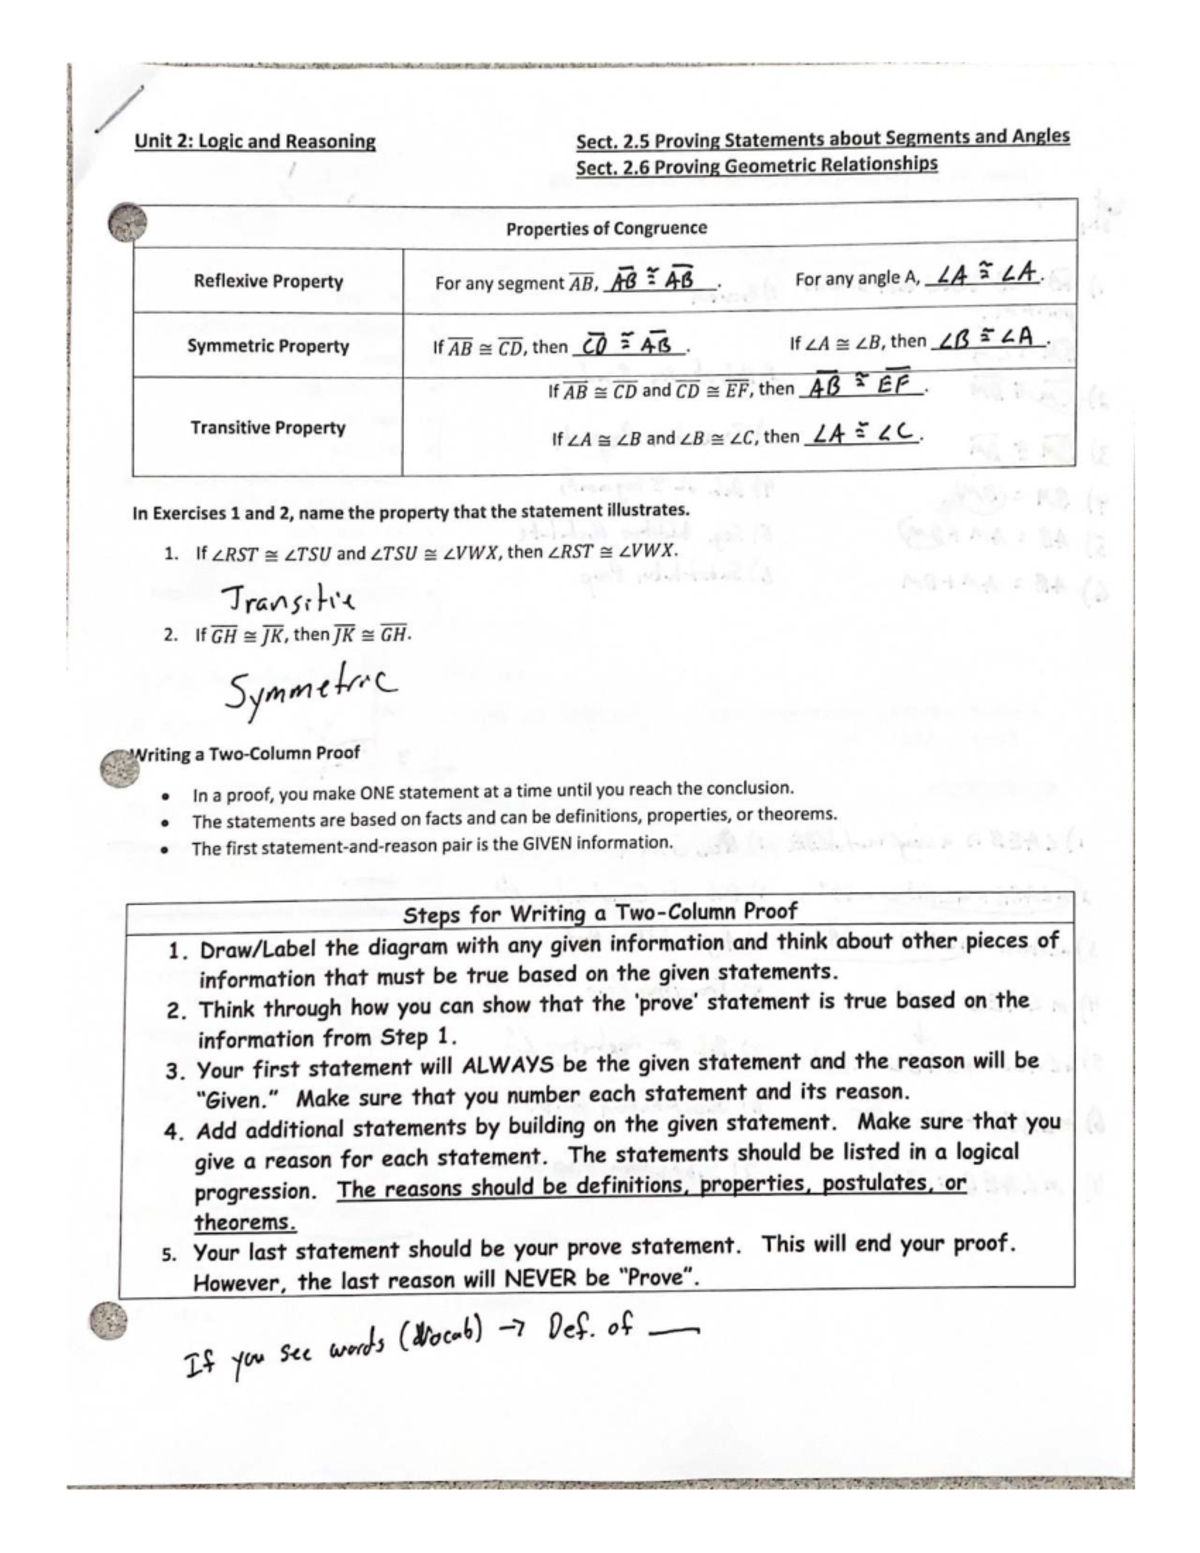 Unit 2: Logic and Reasoning
Sect. 2.5 Proving Statements about Segments and Angles
Sect. 2.6 Proving Geometric Relationships
Properties of Congruence
Reflexive Property
For any segment A̅B̅, A̅B̅ ≅ A̅B̅. For any angle A, ∠A ≅ ∠A.
Symmetric Property
If A̅B̅ ≅ C̅D̅, then C̅D̅ ≅ A̅B̅. If ∠A ≅ ∠B, then ∠B ≅ ∠A.
Transitive Property
If A̅B̅ ≅ C̅D̅ and C̅D̅ ≅ E̅F̅, then A̅B̅ ≅ E̅F̅.
If ∠A ≅ ∠B and ∠B ≅ ∠C, then ∠A ≅ ∠C.
In Exercises 1 and 2, name the property that the statement illustrates.
1. If ∠RST ≅ ∠TSU and ∠TSU ≅ ∠VWX, then ∠RST ≅ ∠VWX.
Transitive
2. If G̅H̅ ≅ J̅K̅, then J̅K̅ ≅ G̅H̅.
Symmetric
Writing a Two-Column Proof
• In a proof, you make ONE statement at a time until you reach the conclusion.
• The statements are based on facts and can be definitions, properties, or theorems.
• The first statement-and-reason pair is the GIVEN information.
Steps for Writing a Two-Column Proof
1. Draw/Label the diagram with any given information and think about other pieces of
information that must be true based on the given statements.
2. Think through how you can show that the 'prove' statement is true based on the
information from Step 1.
3. Your first statement will ALWAYS be the given statement and the reason will be
"Given." Make sure that you number each statement and its reason.
4. Add additional statements by building on the given statement. Make sure that you
give a reason for each statement. The statements should be listed in a logical
progression. The reasons should be definitions, properties, postulates, or
theorems.
5. Your last statement should be your prove statement. This will end your proof.
However, the last reason will NEVER be "Prove".
If you see words (Vocab) → Def. of ___